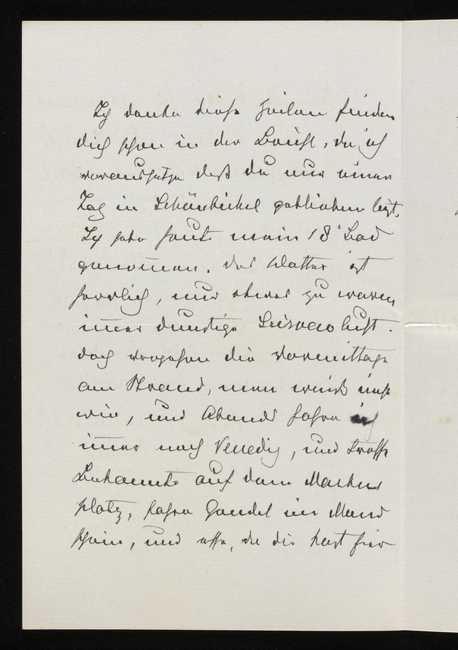 Ich denke diese Zeilen finden
dich schon in der Brühl, da ich
voraussetze daß du nur einen
Tag in geblieben bist.
Ich habe heute mein 18' Bad
genommen. Das Wetter ist
herrlich, nur etwas zu warm
immer dunstige Luft.
doch vergehen die Vormittage
am Strand, man weiß nicht
wie, und Abends fahre ich
immer nach Venedig, und treffe
Bekannte auf dem Markus
platz, fahre Gondel im Mond
schein, und esse, da die Kost hier